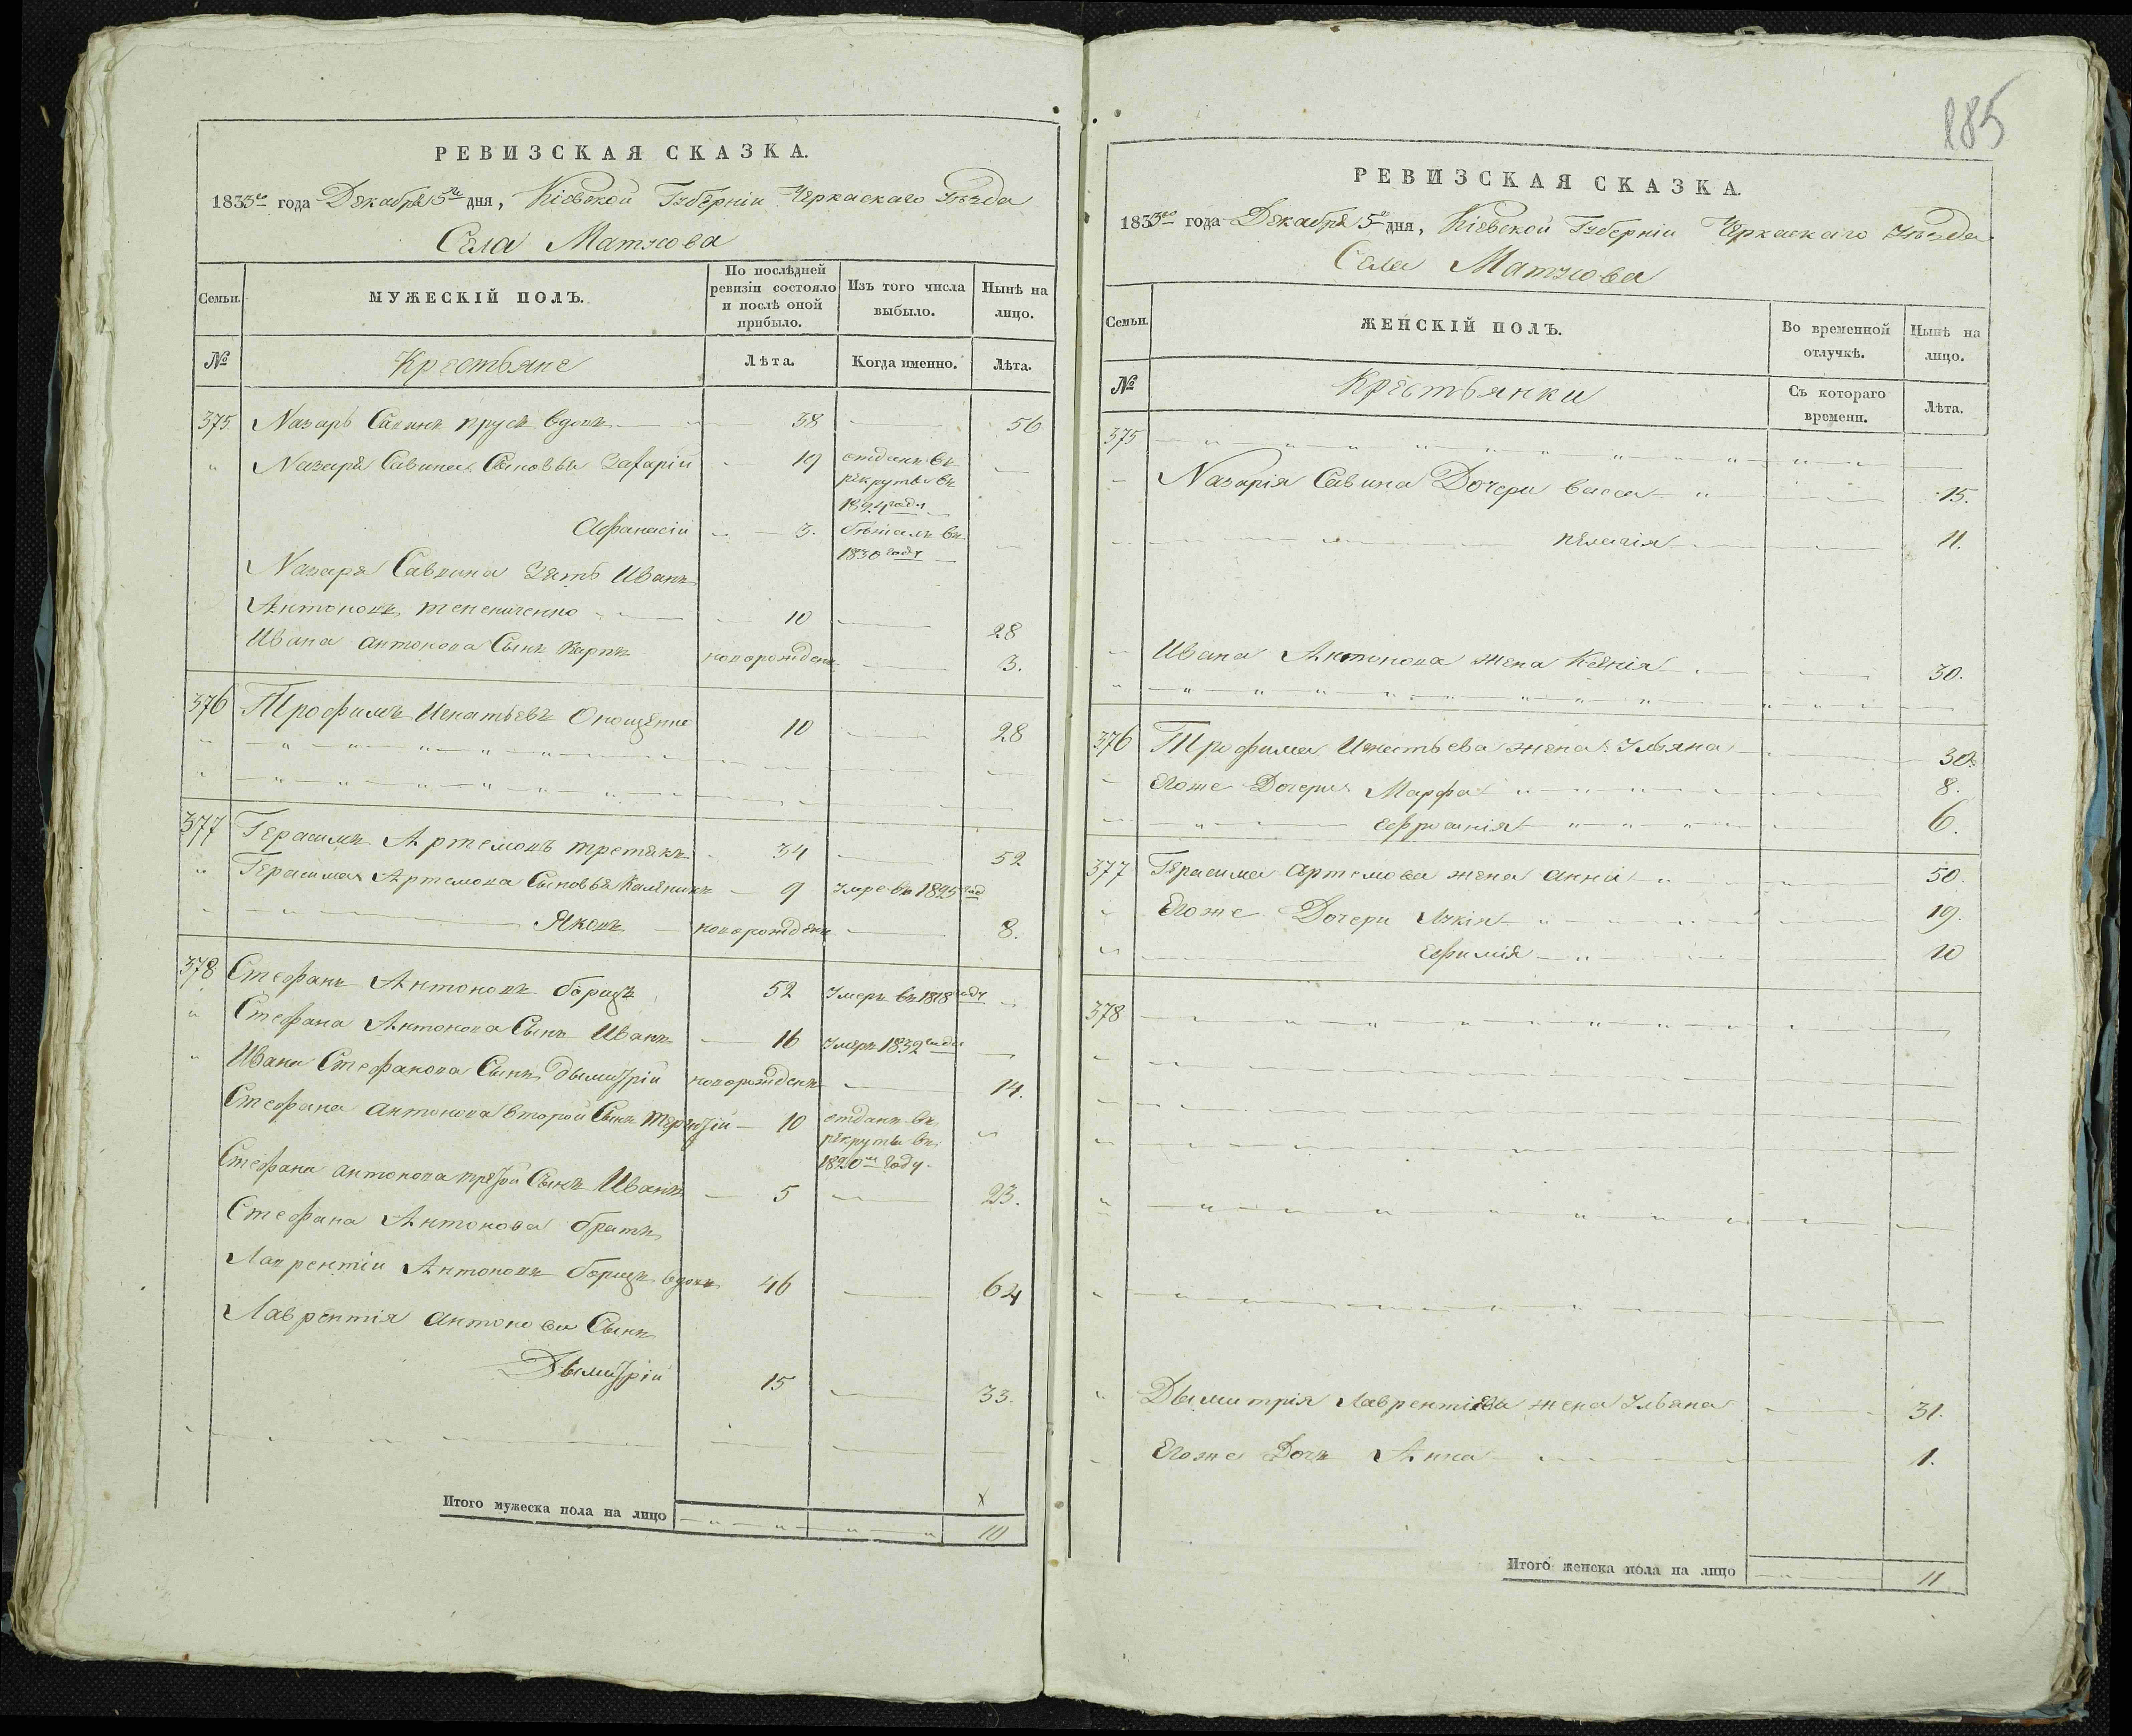 РЕВИЗСКАЯ СКАЗКА.
1833го года Декабря 5го дня, Кіевской Губерніи Черкаскаго Уезда
Села Матусова
Семьи. МУЖЕСКІЙ ПОЛЪ. По послѣдней ревизіи состояло и послѣ оной прибыло. Изъ того числа выбыло. Нынѣ на лицо.
№ Крестьяне Лѣта. Когда именно. Лѣта.
375 Назаръ Савинъ прусъ вдовъ 38 56
Назара Савина Сыновья Захарій 19 отданъ въ
рекруты въ
1824 году
Афанасій 3. бежалъ въ
1830 году
Назара Савина Зять Иванъ
Антоновъ 10 28
Ивана антонова Сынъ Карпъ новорожденъ 3.
376 Трофимъ Игнатьевъ Онощенко 10 28
377 Герасимъ Артемовъ третякъ 34 52
Герасима Артемова Сыновья Каленикъ 9 умре въ 1825 год
Яковъ новорожденъ 8.
378 Стефанъ Антоновъ борщъ 52 Умеръ въ 1818 году
Стефана Антонова Сынъ Иванъ 16 умеръ 1832 года
Ивана Стефанова Сынъ Дымитрій новорожденъ 14.
Стефана антонова второй Сынъ 10 отданъ въ
рекруты въ
1820м году.
Стефана антонова третой Сынъ Иванъ 5 23.
Стефана Антонова братъ
Лаврентіи Антоновъ борщъ вдовъ 46 64
Лаврентія антонова Сынъ
Дымитрій 15 33.
х
Итого мужеска пола на лицо 10
185
РЕВИЗСКАЯ СКАЗКА.
1833го года Декабря 5го дня, Кіевской Губерніи Черкаскаго Уезда
Села Матусова
Семьи. ЖЕНСКІЙ ПОЛЪ. Во временной отлучкѣ. Нынѣ на лицо.
№ Крестьянки Съ котораго времени. Лѣта.
375
Назарія Савина Дочери васса 15.
пелагія 11.
Ивана Антонова жена Ксенія 30.
376 Трофима Игнатьева жена Ульяна 30.
Егоже Дочери Марфа 8.
Ефросинія 6.
377 Герасима артемова жена анна 50.
Егоже Дочери Лукія 19.
Ефимія 10
378
Дымитрія Лаврентіева жена Ульяна 31.
Егоже Дочь Анна 1.
Итого женска пола на лицо 11